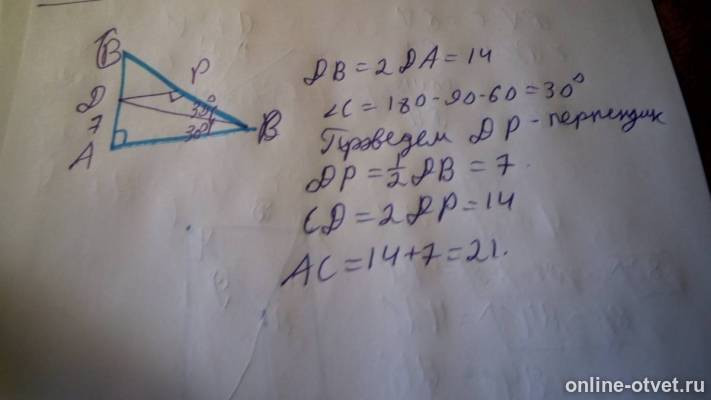 B
D
P
7
30°
30°
A
B
DB = 2 DA = 14
∠C = 180 - 90 - 60 = 30°
Проведем DP - перпендик
DP = 1/2 DB = 7.
CD = 2 DP = 14
AC = 14 + 7 = 21.
online-otvet.ru